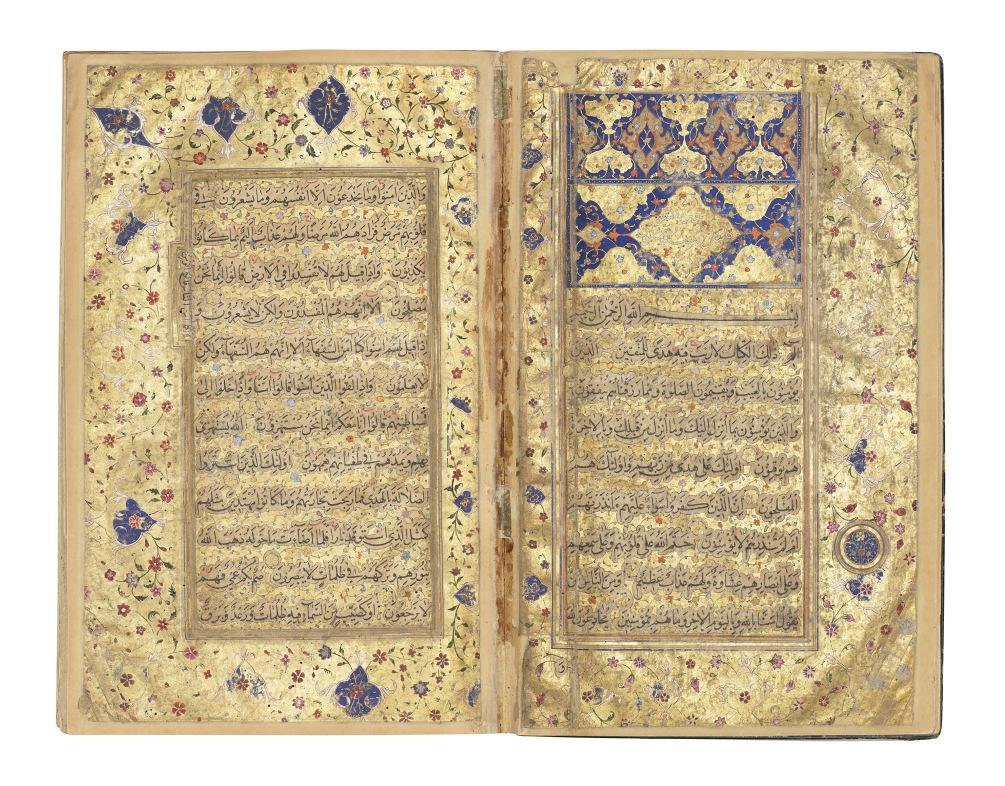 بسم الله الرحمن الرحيم
الم ذلك الكتاب لا ريب فيه هدى للمتقين الذين
يؤمنون بالغيب ويقيمون الصلوة ومما رزقناهم ينفقون
والذين يؤمنون بما انزل اليك وما انزل من قبلك وبالاخرة
هم يوقنون اولئك على هدى من ربهم واولئك هم
المفلحون ان الذين كفروا سواء عليهم ءانذرتهم
ام لم تنذرهم لا يؤمنون ختم الله على قلوبهم وعلى سمعهم
وعلى ابصارهم غشاوة ولهم عذاب عظيم ومن الناس من
يقول امنا بالله وباليوم الاخر وما هم بمؤمنين يخادعون الله
والذين امنوا وما يخدعون الا انفسهم وما يشعرون في
قلوبهم مرض فزادهم الله مرضا ولهم عذاب اليم بما كانوا
يكذبون واذا قيل لهم لا تفسدوا في الارض قالوا انما نحن
مصلحون الا انهم هم المفسدون ولكن لا يشعرون و
اذا قيل لهم امنوا كما امن السفهاء الا انهم هم السفهاء ولكن
لا يعلمون واذا لقوا الذين امنوا قالوا امنا واذا خلوا الى
شياطينهم قالوا انا معكم انما نحن مستهزؤن الله يستهزئ
بهم ويمدهم في طغيانهم يعمهون اولئك الذين اشتروا
الضلالة بالهدى فما ربحت تجارتهم وما كانوا مهتدين مثلهم
كمثل الذي استوقد نارا فلما اضاءت ما حوله ذهب الله
بنورهم وتركهم في ظلمات لا يبصرون صم بكم عمي فهم
لا يرجعون او كصيب من السماء فيه ظلمات ورعد وبرق